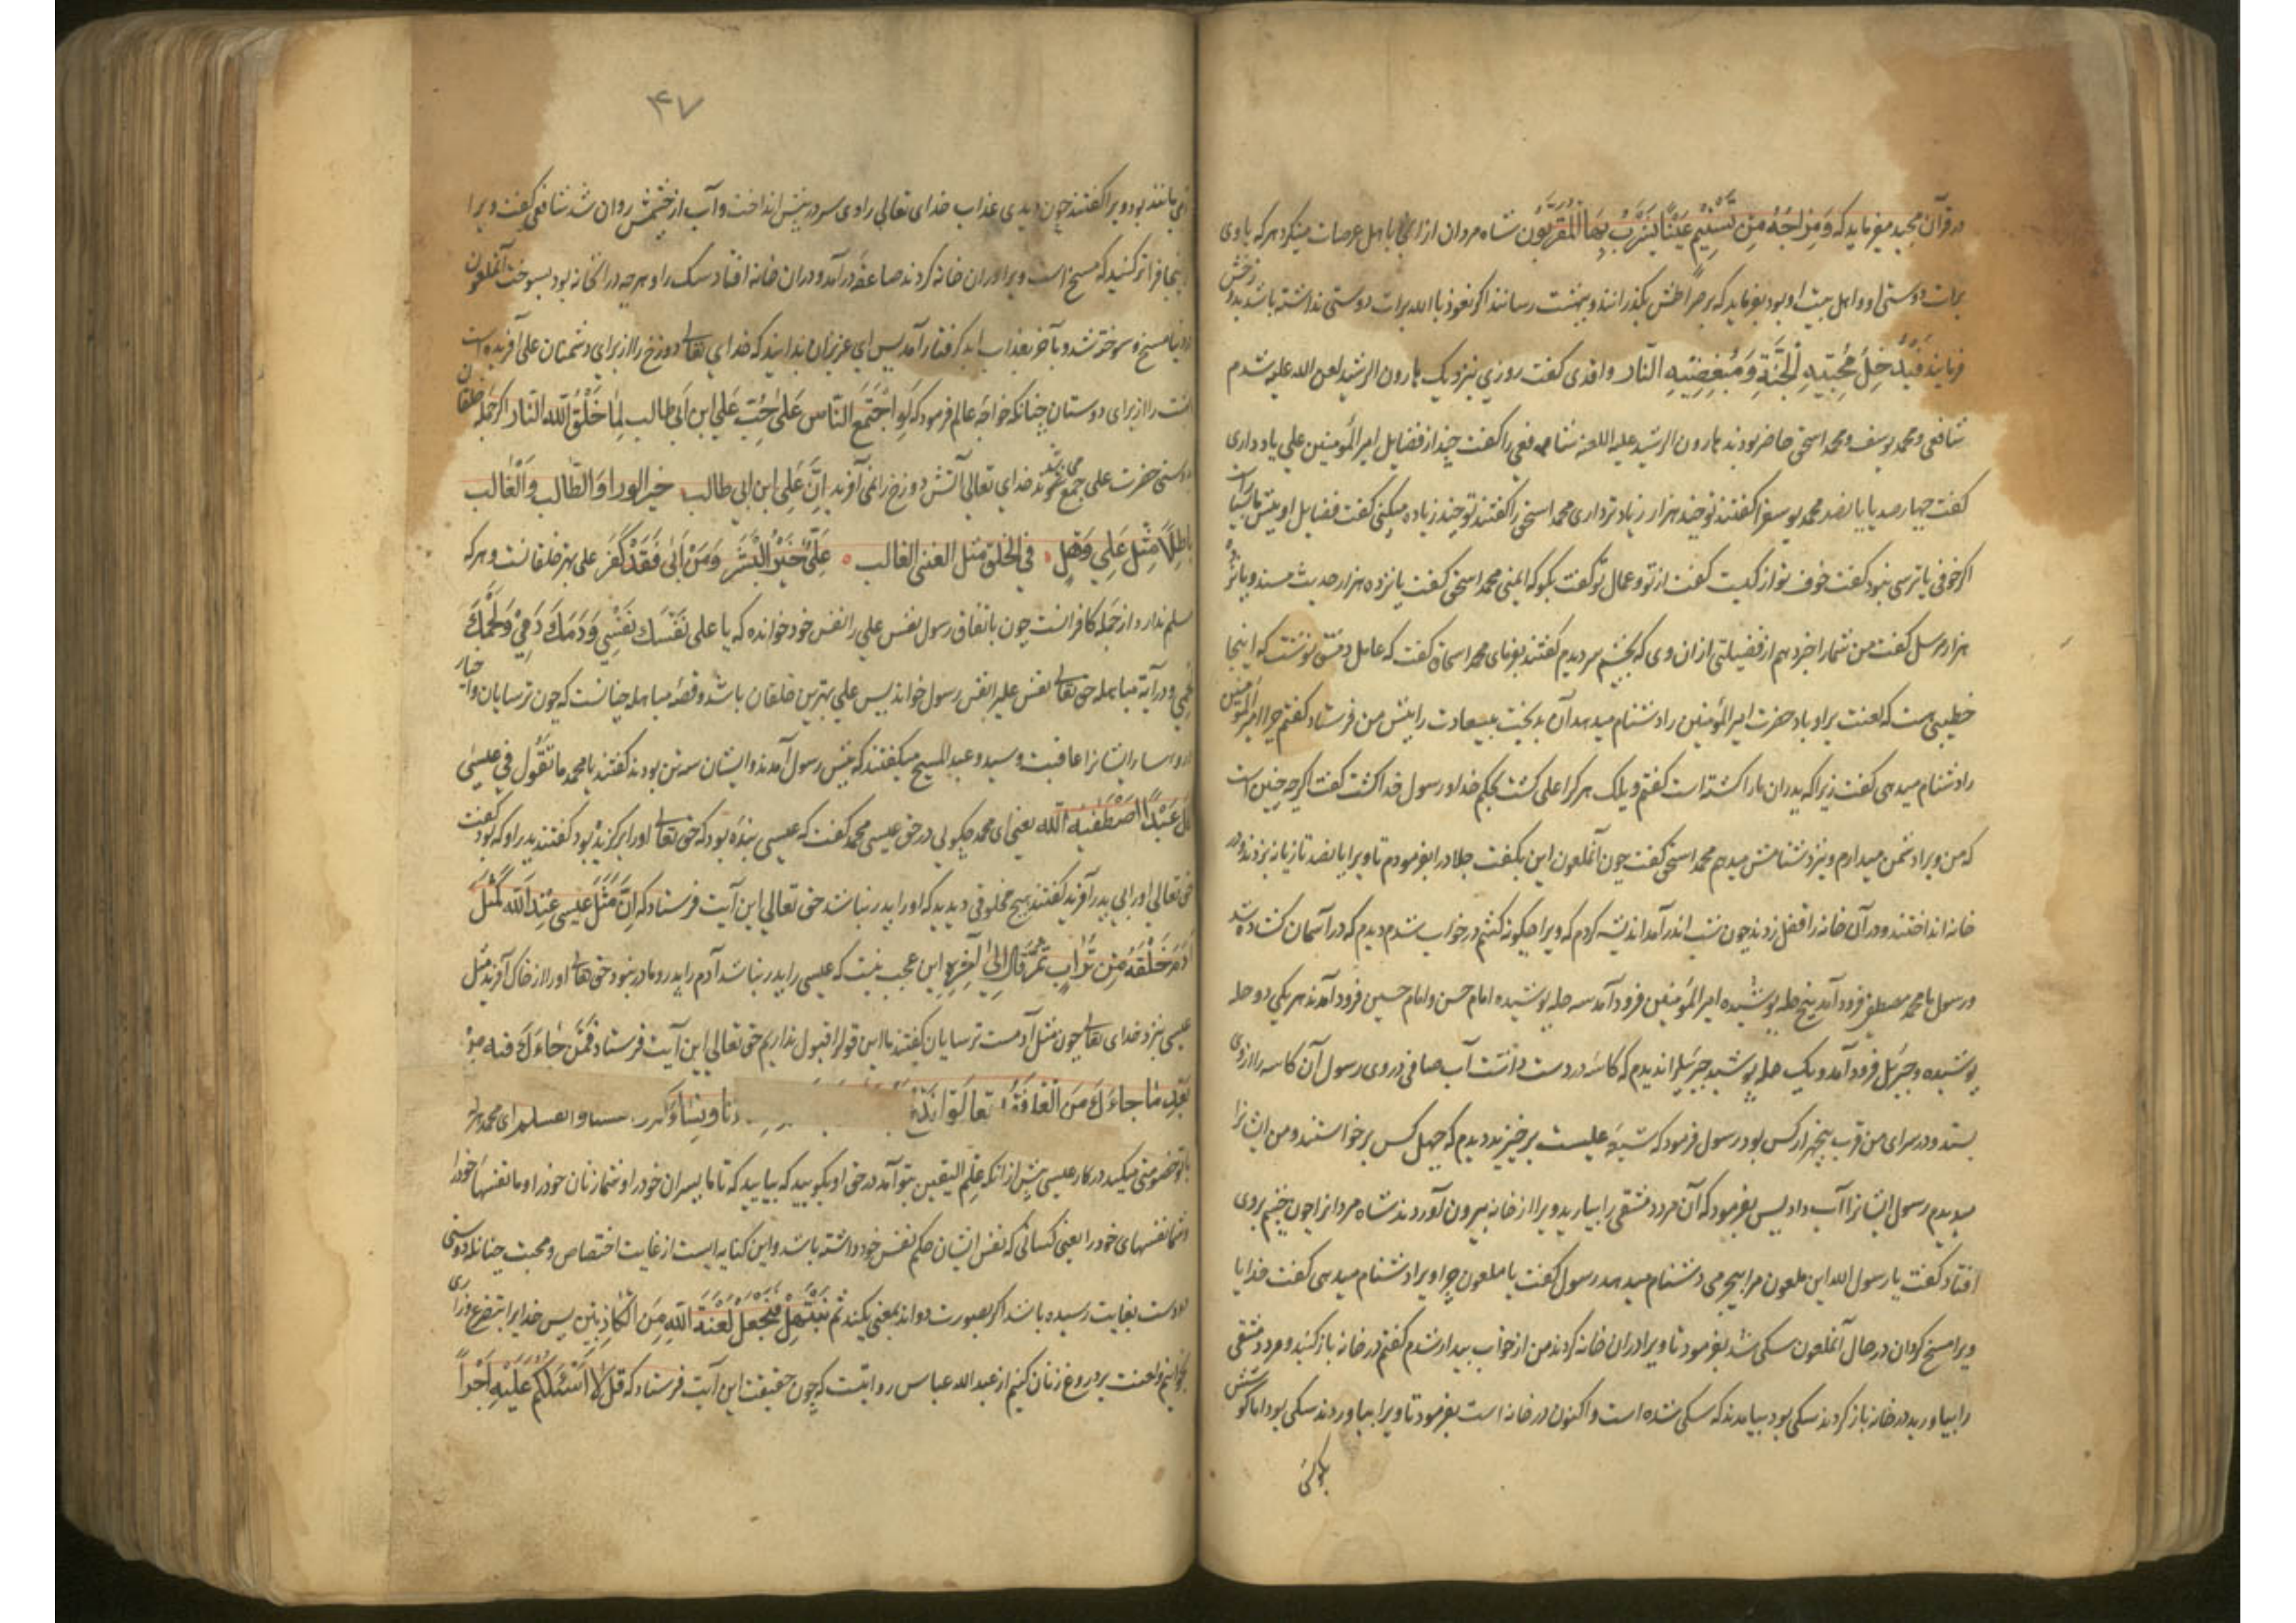 در قرآن مجید میفرماید که وَمِزَاجُهُ مِن تَسْنِیْمٍ عَیْنًا یَشْرَبُ بِهَا الْمُقَرَّبُون شاه مردان ازانجا باهل عرصات مینگرد هر که با وی
برات دوستی او و اهل بیت او بود بفرماید که بر صراطش بگذرانند و ببهشت رسانند اگر نعوذ باالله برات دوستی نداشته باشد بدوزخش
فرمایند فَیُدْخِلُ مُحِبِّیْهِ الْجَنَّةِ وَمُبْغِضِیْهِ النّار واقدی گفت روزی بنزدیک هارون الرشید لعن الله علیه شدم
شافعی و محمد یوسف و محمد اسحق حاضر بودند هارون الرشید علیه اللعنه شافعی را گفت چند از فضایل امیر المؤمنین علی یاد داری
گفت چهارصد یا پانصد محمد یوسف را گفتند تو چند هزار زیادتر داری محمد اسحق را گفتند تو چند زیاده میکنی گفت فضایل او بیش ما بسیار است
اگر خوفی یا ترسی نبود گفت خوف تو از کیست گفت از تو و عمال تو گفت بگو که ایمنی محمد اسحق گفت پانزده هزار حدیث مسند و پانزده
هزار مرسل گفت من شما را خبر دهم از فضیلتی ازان وی که بچشم سر دیدم گفتند بفرمای گفت که عامل دمشق نوشت که اینجا
خطیبی هست که لعنت بر او باد حضرت امیر المؤمنین را دشنام میدهد آن بدبخت بیسعادت را پیش من فرستاد گفتم چرا امیر المؤمنین
را دشنام میدهی گفت زیرا که پدران ما را کشته است گفتم ویلک هر کرا علی کشت بحکم خدا و رسول خدا کشت گفت اگرچه چنین است
که من ویرا دشمن میدارم و نیز دشنامش میدهم محمد اسحق گفت چون آنملعون این بگفت جلاد را بفرمودم تا ویرا پانصد تازیانه بزدند و در
خانه انداختند و در آن خانه را قفل زدند چون شب اندر آمد اندیشه کردم که ویرا چگونه کشم در خواب شدم دیدم که در آسمان گشاده شد
و رسول ما محمد مصطفی فرود آمد پنج حله پوشیده امیر المؤمنین فرود آمد سه حله پوشیده امام حسن و امام حسین فرود آمدند هر یکی دو حله
پوشیده و جبرئیل فرود آمد و یک حله پوشید جبرئیل را دیدم که کاسه در دست داشت آب صافی در وی رسول آن کاسه را از وی
بستد و در سرای من قرب پنجهزار کس بود رسول فرمود که شیعه علیست برخیزید دیدم که چهل کس برخواستند و من ایشانرا
میدیدم رسول ایشانرا آب داد پس بفرمود که آن مرد دمشقی را بیارید ویرا از خانه بیرون آوردند شاه مردانرا چون چشم بروی
افتاد گفت یا رسول الله این ملعون مرا بیجرمی دشنام میدهد رسول گفت یا ملعون چرا ویرا دشنام میدهی گفت خدایا
ویرا مسخ گردان در حال آنملعون سگی شد بفرمود تا ویرا در ان خانه کردند من از خواب بیدار شدم گفتم در خانه باز کنید و مرد دمشقی
را بیاورید در خانه باز کردند سگی بود بیامدند که سگی شده است و اکنون در خانه است بفرمود تا ویرا بیاوردند سگی بود اما گوشش
۴۷
بود ویرا گفتند چون دیدی عذاب خدای تعالی را وی سر در پیش انداخت و آب از چشمش روان شد شافعی گفت ویرا
فراتر کنید که مسخ است ویرا در ان خانه کردند صاعقه درآمد و در ان خانه افتاد سگ را و هرچه در آنخانه بود بسوخت آنملعون
مسخ و سوخته شد و باخر بعذاب ابد گرفتار آمد پس ای عزیزان بدانید که خدای تعالی دوزخ را از برای دشمنان علی آفریده است
را از برای دوستان چنانکه خواجه عالم فرمود که لَوِ اجْتَمَعَ النَّاس عَلَىٰ حُبِّ عَلِي ابن اَبی طالب لِمَا خَلَقَ الله النار اگر جمله خلقان
حضرت علی جمع میشدند خدای تعالی آتش دوزخ را نمی آفرید اِنَّ عَلِی ابن ابی طالب خیر الورا وَالطّالب والْغَالب
مِثْل عَلِی وَهَل فی الخلق مثل الغنی الغالب عَلِیٌّ خَیْرُ الْبَشَر وَمَنْ اَبٰی فَقَدْ كَفَر علی بهتر خلقانست و هر که
ندارد از جمله کافرانست چون باتفاق رسول نفس علی را نفس خود خوانده که یا علی نَفْسُكَ نَفْسِی وَدَمُكَ دَمِیْ وَلَحْمُكَ
و در آیة مباهله حق تعالی نفس علی را نفس رسول خواند پس علی بهترین خلقان باشد و قصه مباهله چنانست که چون ترسایان و احبار
ایشانرا عاقبت و سید و عبد المسیح میگفتند که پیش رسول آمدند و ایشان سه تن بودند گفتند یا محمد ما تَقُول فی عیسٰی
عَبْدًا اصْطَفٰیهُ الله یعنی ای محمد چگویی در حق عیسی محمد گفت که عیسی بنده بود که حق تعالی او را برگزیده بود گفتند پدر او که بود گفت
حق تعالی او را بی پدر آفرید گفتند هیچ مخلوقی دیدید که او را پدر نباشد حق تعالی این آیت فرستاد که اِنَّ مَثَلَ عِیسی عِنْدَ الله كَمَثَل
آدَمَ خَلَقَهُ مِن تُرَابٍ ثُمَّ قَالَ اِلیٰ آخِرِه این عجب نیست که عیسی را پدر نباشد آدم را پدر و مادر نبود حق تعالی او را از خاک آفرید مثل
عیسی نزد خدای تعالی چون مثل آدمست ترسایان گفتند ما این قول را قبول نداریم حق تعالی این آیت فرستاد فَمَنْ حَاجَّكَ فیه من
بَعْدِ مَا جاءَكَ مِنَ الْعِلْمِ فَقُلْ تَعَالَوْا نَدْعُ
خصومتی میکنند در کار عیسی پس ازانکه علم الیقین بتو آمد در حق او بگویید که بیایید که تا ما پسران خود را و شما زنان خود را و ما نفسهای خود را
و شما نفسهای خود را یعنی کسانی که نفس ایشان حکم نفس خود داشته باشد و این کنایه ایست از غایت اختصاص و محبت چنانکه دوستی
دوست بغایت رسیده باشد اگر بصورت دواند بمعنی یکند ثُمَّ نَبْتَهِلْ فَنَجْعَلْ لَعْنَةَ اللهِ عَلَی الْكَاذِبِین پس خدایرا بتضرع و زاری
بخوانیم و لعنت بر دروغ زنان کنیم از عبد الله عباس روایتست که چون حقیقت این آیت فرستاد که قُل لَا اَسْئَلُكُمْ عَلَیْهِ اَجْرًا